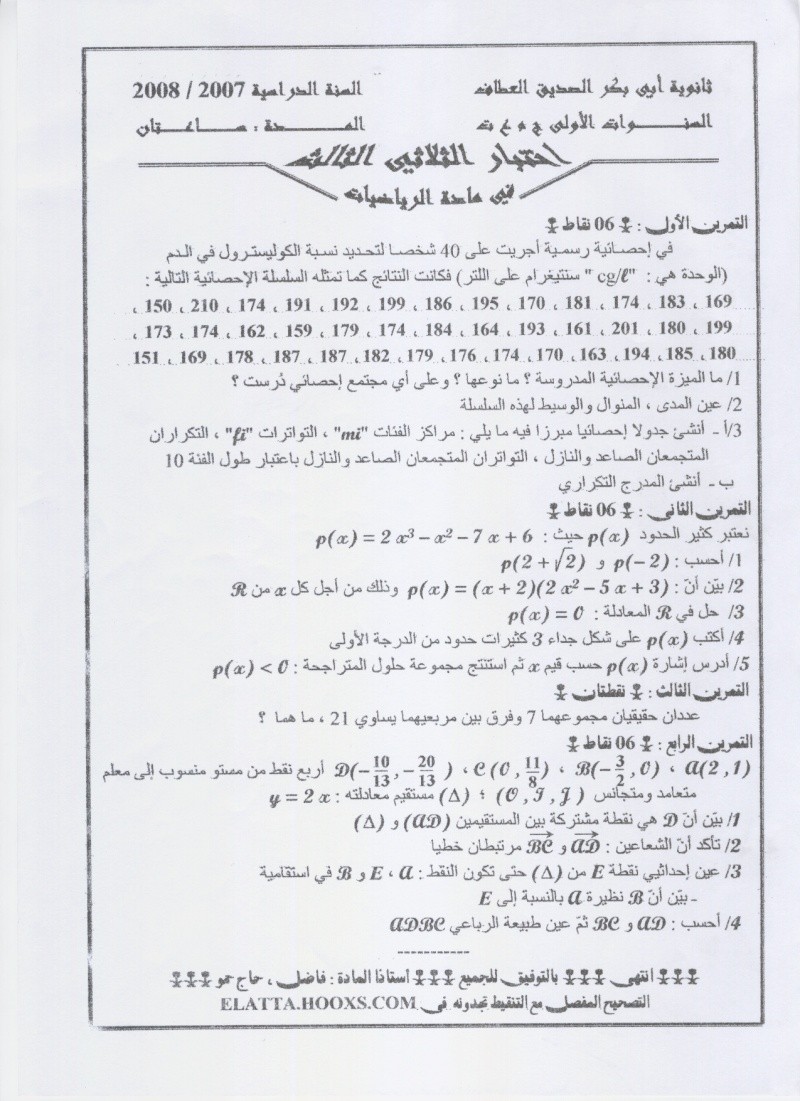 ثانوية أبي بكر الصديق العطاف
السنة الدراسية 2007 / 2008
السنوات الأولى ج م ع ت
المدة : ساعتان
اختبار الثلاثي الثالث
في مادة الرياضيات
التمرين الأول : 06 نقاط
في إحصائية رسمية أجريت على 40 شخصا لتحديد نسبة الكوليسترول في الدم
(الوحدة هي : "cg/ℓ" سنتيغرام على اللتر) فكانت النتائج كما تمثله السلسلة الإحصائية التالية :
169 ، 183 ، 174 ، 181 ، 170 ، 195 ، 186 ، 199 ، 192 ، 191 ، 174 ، 210 ، 150 ،
199 ، 180 ، 201 ، 161 ، 193 ، 164 ، 184 ، 174 ، 179 ، 159 ، 162 ، 174 ، 173 ،
180 ، 185 ، 194 ، 163 ، 170 ، 174 ، 176 ، 179 ، 182 ، 187 ، 187 ، 178 ، 169 ، 151
1/ ما الميزة الإحصائية المدروسة ؟ ما نوعها ؟ وعلى أي مجتمع إحصائي دُرست ؟
2/ عين المدى ، المنوال والوسيط لهذه السلسلة
3/أ - أنشئ جدولا إحصائيا مبرزا فيه ما يلي : مراكز الفئات "mi" ، التواترات "fi" ، التكراران
المتجمعان الصاعد والنازل ، التواتران المتجمعان الصاعد والنازل باعتبار طول الفئة 10
ب - أنشئ المدرج التكراري
التمرين الثاني : 06 نقاط
نعتبر كثير الحدود p(x) حيث : p(x) = 2 x³ – x² – 7 x + 6
1/ أحسب : p(– 2) و p(2 + √2)
2/ بيّن أنّ : p(x) = (x + 2)(2 x² – 5 x + 3) وذلك من أجل كل x من R
3/ حل في R المعادلة : p(x) = 0
4/ أكتب p(x) على شكل جداء 3 كثيرات حدود من الدرجة الأولى
5/ أدرس إشارة p(x) حسب قيم x ثم استنتج مجموعة حلول المتراجحة : p(x) < 0
التمرين الثالث : نقطتان
عددان حقيقيان مجموعهما 7 وفرق بين مربعيهما يساوي 21 ، ما هما ؟
التمرين الرابع : 06 نقاط
A(2 , 1) ، B(–3/2 , 0) ، C(0 , 11/8) ، D(–10/13 , –20/13) أربع نقط من مستو منسوب إلى معلم
متعامد ومتجانس (O , I , J) ؛ (Δ) مستقيم معادلته : y = 2 x
1/ بيّن أنّ D هي نقطة مشتركة بين المستقيمين (AD) و (Δ)
2/ تأكد أنّ الشعاعين : AD و BC مرتبطان خطيا
3/ عين إحداثيي نقطة E من (Δ) حتى تكون النقط : E ، A و B في استقامية
- بيّن أنّ B نظيرة A بالنسبة إلى E
4/ أحسب : AD و BC ثمّ عين طبيعة الرباعي ADBC
-----------
انتهى بالتوفيق للجميع أستاذا المادة : فاضل ، حاج حمو
التصحيح المفصل مع التنقيط تجدونه في ELATTA.HOOXS.COM